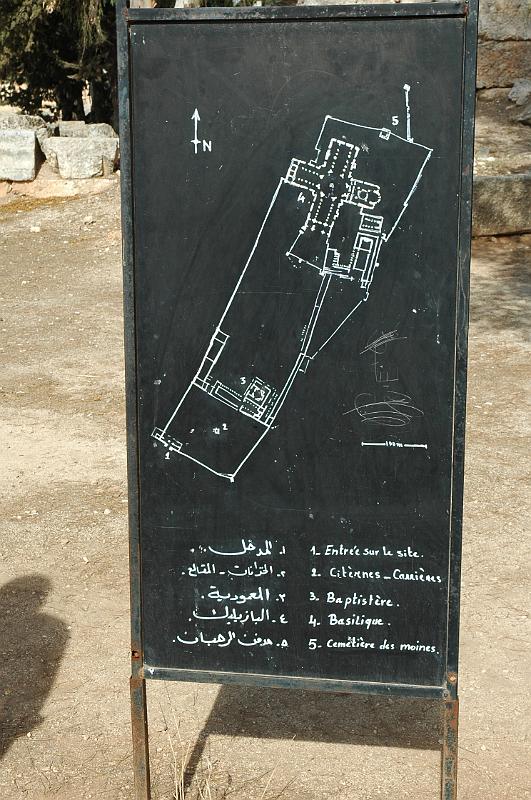 N
5
4
3
2
1
100 m
١. المدخل
1_ Entrée sur le site.
٢. الخزانات - المقالع.
2. Citernes_Carrières
٣. المعمودية.
3. Baptistère.
٤. البازيليك.
4. Basilique.
٥. مدفن الرهبان.
5. Cemetière des moines.